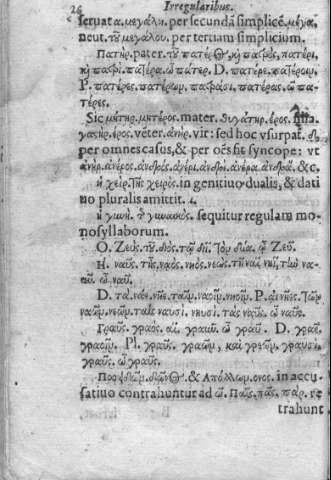 26 Irregularibus.
seruat α. μεγάλη. per secundā simplicē. μέγα,
neut. τοῦ μεγάλου. per tertiam simplicium.
Πατὴρ. pater. τοῦ πατέρος, καὶ πατρὸς, πατέρι,
καὶ πατρὶ. πατέρα. ὦ πάτερ. D. πατέρε. πατέροιν.
P. πατέρες, πατέρων. πατράσι, πατέρας. ὦ πα-
τέρες.
Sic μήτηρ. μητέρος. mater. θυγάτηρ. έρος. filia.
γαστὴρ. έρος. veter. ἀνὴρ. vir: sed hoc vsurpat.
per omnes casus, & per oēs fit syncope: vt
ἀνὴρ. ἀνέρος. ἀνδρὸς. ἀνέρι. ἀνδρὶ. ἀνέρα. ἄνδρα. & c.
ἡ χεὶρ. τῆς χειρὸς. in genitiuo dualis, & dati
no pluralis amittit. ι.
ἡ γυνὴ. τῆς γυναικὸς. sequitur regulam mo-
nosyllaborum.
Ο. Ζεὺς. τοῦ διὸς. τῷ διῒ. τὸν δία. ὦ Ζεῦ.
Η. ναῦς. τῆς ναὸς. νηὸς. νεὼς. τῇ ναῒ. νηῒ. τὴν να-
ῦν. ὦ ναῦ.
D. τὰ νᾶε. νῆε. ταῖν. ναοῖν. νηοῖν. P. αἱ νῆες. τῶν
ναῶν. νεῶν. ταῖς ναυσὶ. νηυσὶ. τὰς ναῦς. ὦ ναῦς.
Γραῦς. γραὸς. αῒ. γραῦν. ὦ γραῦ. D. γρᾶε.
γραοῖν. Pl. γραῦς. γραῶν, καὶ γρεῶν, γραυσὶ,
γραῦς. ὦ γραῦς.
Ποσειδῶν. δῶνος. & Απόλλων. ωνος. in accu-
satiuo contrahuntur ad ω. Πᾶς, πᾶσα, πᾶν. re
trahunt